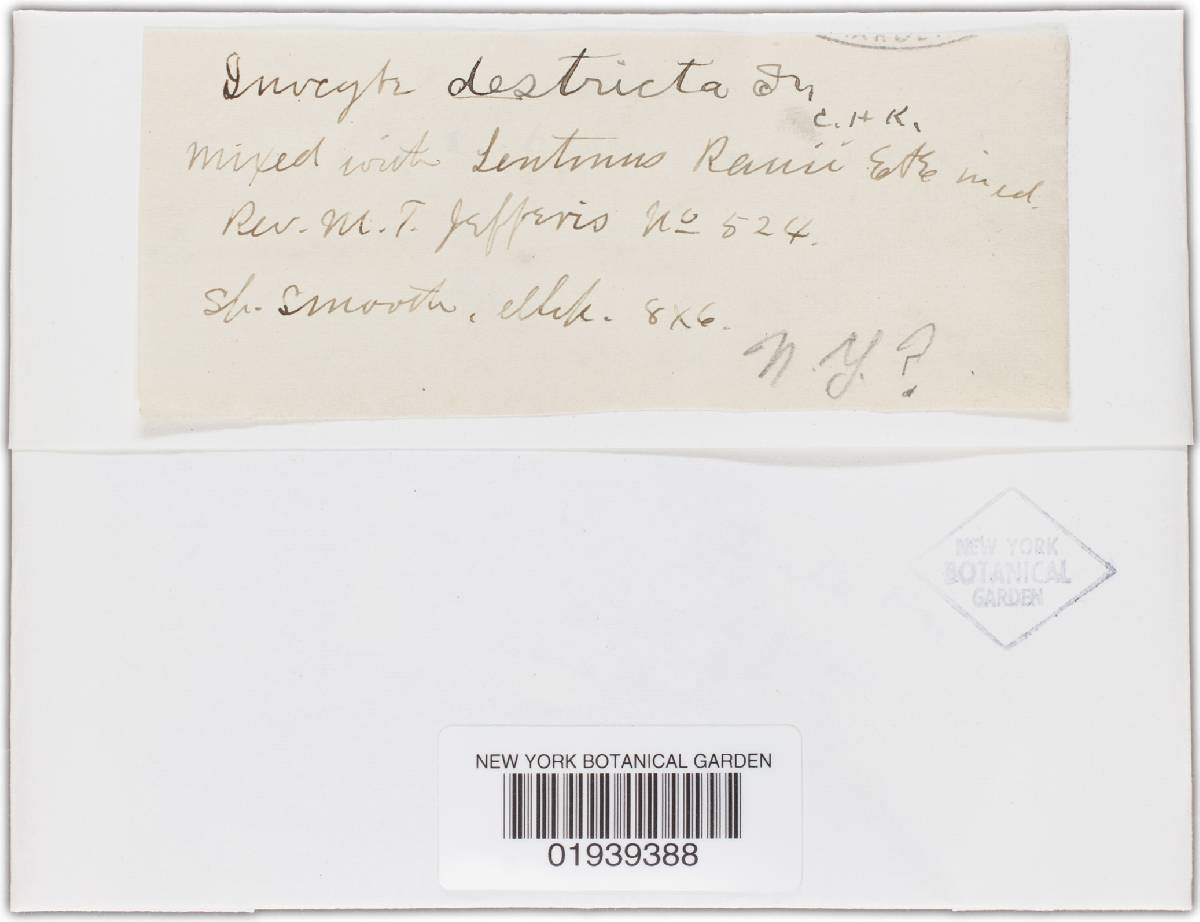 Inocybe destricta Fr
C. H K.
mixed with Lentinus Ravii E&E ined.
Rev. M. T. Jefferis No 524.
sp. smooth, ellip. 8x6.
N. Y. ?
NEW YORK
BOTANICAL
GARDEN
NEW YORK BOTANICAL GARDEN
01939388